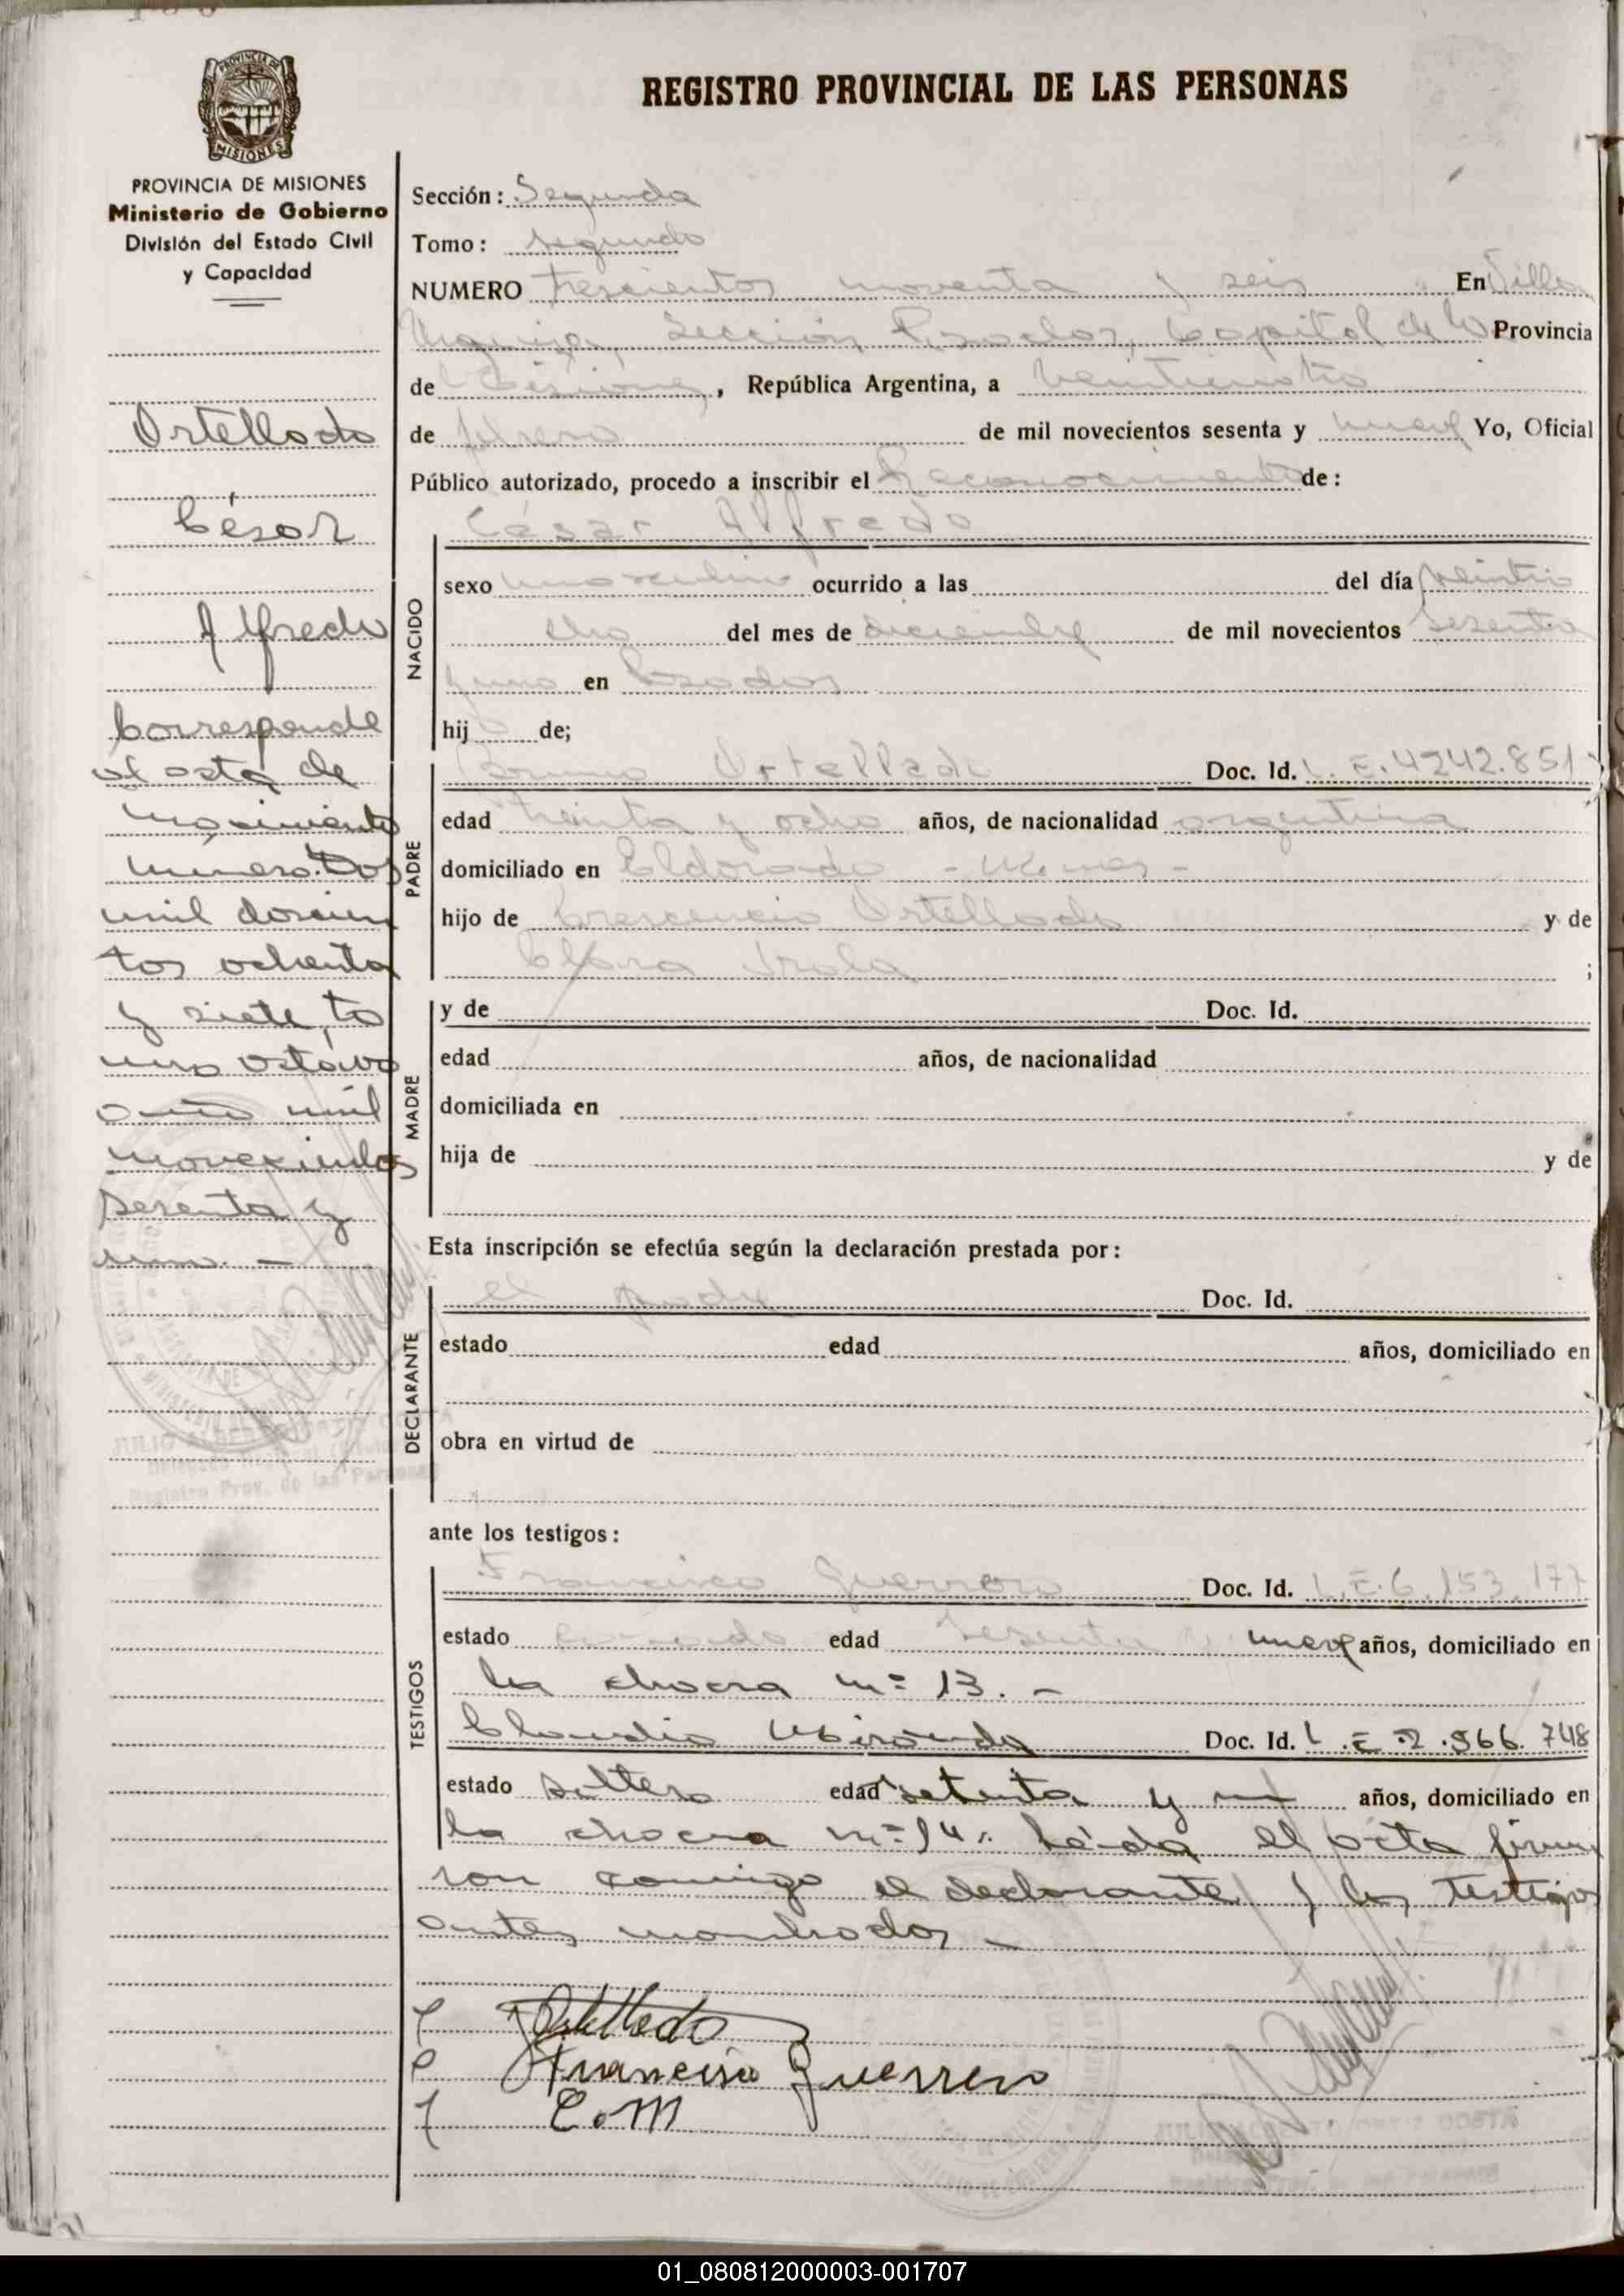 REGISTRO PROVINCIAL DE LAS PERSONAS
PROVINCIA DE MISIONES
MISIONES
PROVINCIA DE MISIONES
Ministerio de Gobierno
División del Estado Civil
y Capacidad
Ortellado
César
Alfredo
Corresponde
al acta de
nacimiento
número Dos
mil doscien
tos ochenta
y siete, to
mo octavo
año mil
novecientos
sesenta y
uno. —
Sección: Segunda
Tomo: segundo
NUMERO trescientos noventa y seis En Villa
Urquiza, Sección Posadas, Capital de la Provincia
de Misiones, República Argentina, a veinticuatro
de febrero de mil novecientos sesenta y nueve Yo, Oficial
Público autorizado, procedo a inscribir el Reconocimiento de:
César Alfredo
NACIDO
sexo masculino ocurrido a las del día
del mes de diciembre de mil novecientos sesenta
y uno en Posadas
hijo de;
PADRE
Bruno Ortellado Doc. Id. L. E. 4242.851
edad treinta y ocho años, de nacionalidad argentina
domiciliado en Eldorado
hijo de Crescencio Ortellado y de
Irala ;
MADRE
y de Doc. Id.
edad años, de nacionalidad
domiciliada en
hija de y de
Esta inscripción se efectúa según la declaración prestada por:
DECLARANTE
el padre Doc. Id.
estado edad años, domiciliado en
obra en virtud de
ante los testigos:
TESTIGOS
Francisco Guerrero Doc. Id. L.E.6.153.177
estado casado edad sesenta y nueve años, domiciliado en
la chacra nº 13. -
Claudio Miranda Doc. Id. L.E.2.566.748
estado soltero edad setenta y años, domiciliado en
la chacra nº 14. Leída el acta firma
ron conmigo el declarante y los testigos
antes nombrados -
Ortellado
Francisco Guerrero
C. M
Registro Prov. de las Personas
01_080812000003-001707